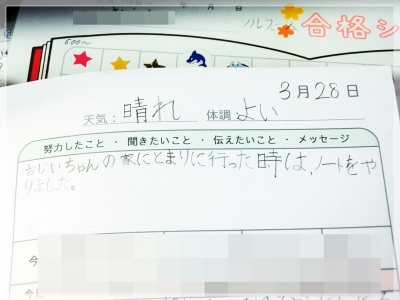 ノルフ
合格シ
600〜
14
3月28日
天気：晴れ 体調 よい
努力したこと ・ 聞きたいこと ・ 伝えたいこと ・ メッセージ
おじいちゃんの家にとまりに行った時は、ノートをや
りました。
今